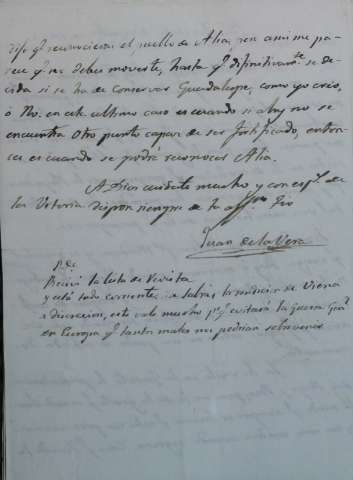 dije qe. reconocieras el pueblo de Alia, pero a mi me pa-
rece qe. no debes moverte, hasta qe. difinitivamte. se de-
cida si se ha de conservar Guadalupe, como yo creo,
ó No. en este ultimo caso es cuando si alas no se
encuentra otro punto capaz de ser fortificado, enton-
ces es cuando se podrá reconocer Alia.
A Dios cuidate mucho y con esps. de
la Vitoria dispon siempre de tu affmo. Tio
Juan de la Vera
P.D.
Recivi la lista de Revista
y está todo corriente, ya sabrás la rendicion de Viena
a discrecion, esto vale mucho pr. qe. evitará la Guerra Genl.
en Europa qe. tantos males nos podrian sobrevenir